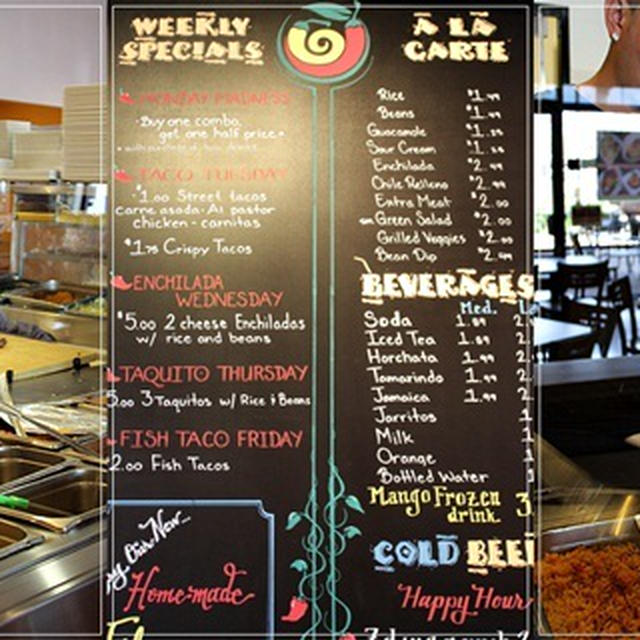 WEEKLY
SPECIALS
MONDAY MADNESS
Buy one combo,
get one half price.
TACO TUESDAY
$1.00 Street tacos
carne asada · Al pastor
chicken - carnitas
$1.75 Crispy Tacos
ENCHILADA
WEDNESDAY
$5.00 2 cheese Enchiladas
w/ rice and beans
TAQUITO THURSDAY
5.00 3 Taquitos w/ Rice & Beans
FISH TACO FRIDAY
2.00 Fish Tacos
Now...
Home-made
À LA
CARTE
Rice $1.99
Beans $1.99
Guacamole
Sour Cream
Enchilada $2.99
Chile Relleno $2.99
Extra Meat $2.00
Green Salad $2.00
Grilled Veggies $2.00
Bean Dip
BEVERAGES
Med.
Soda
Iced Tea 1.99
Horchata 1.99
Tamarindo 1.99
Jamaica 1.99
Jarritos
Milk
Orange
Bottled Water
Mango Frozen 3
drink.
COLD BEE
Happy Hour